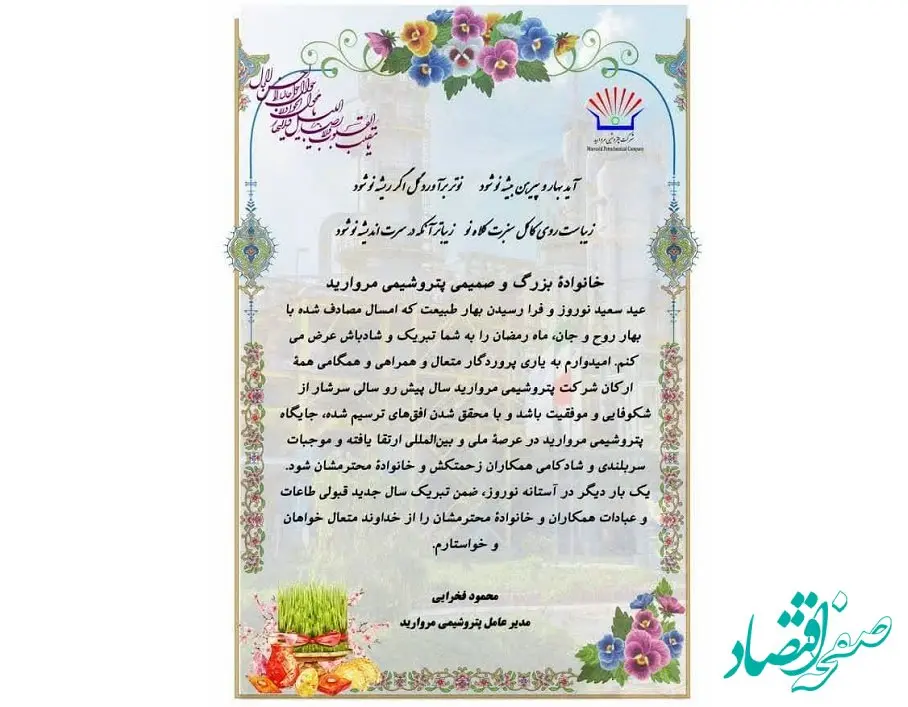 یا مقلب القلوب و الابصار
شرکت پتروشیمی مروارید
Morvarid Petrochemical Company
آید بهار و پیرهن بیشه نو شود نوتر برآورد گل اگر ریشه نو شود
زیباست روی کاکل سبزت کلاه نو زیباتر آنکه در سرت اندیشه نو شود
خانوادهٔ بزرگ و صمیمی پتروشیمی مروارید
عید سعید نوروز و فرا رسیدن بهار طبیعت که امسال مصادف شده با
بهار روح و جان، ماه رمضان را به شما تبریک و شادباش عرض می
کنم. امیدوارم به یاری پروردگار متعال و همراهی و همگامی همهٔ
ارکان شرکت پتروشیمی مروارید سال پیش رو سالی سرشار از
شکوفایی و موفقیت باشد و با محقق شدن افق‌های ترسیم شده، جایگاه
پتروشیمی مروارید در عرصهٔ ملی و بین‌المللی ارتقا یافته و موجبات
سربلندی و شادکامی همکاران زحمتکش و خانوادهٔ محترمشان شود.
یک بار دیگر در آستانه نوروز، ضمن تبریک سال جدید قبولی طاعات
و عبادات همکاران و خانوادهٔ محترمشان را از خداوند متعال خواهان
و خواستارم.
محمود فخرایی
مدیر عامل پتروشیمی مروارید
صفحه اقتصاد